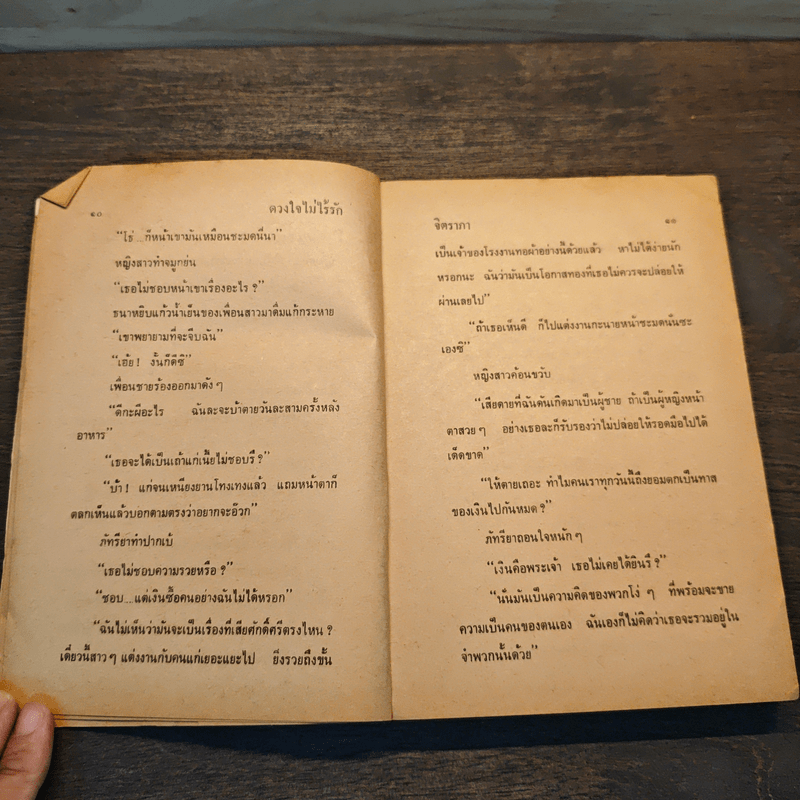 ๔๐
ดวงใจไม่ไร้รัก
“โธ่ ...ก็หน้าเขามันเหมือนชะมดนี่นา”
หญิงสาวทำจมูกย่น
“เธอไม่ชอบหน้าเขาเรื่องอะไร ?”
ธนาหยิบแก้วน้ำเย็นของเพื่อนสาวมาดื่มแก้กระหาย
“เขาพยายามที่จะจีบฉัน”
“เฮ้ย ! งั้นก็ดีซิ”
เพื่อนชายร้องออกมาดัง ๆ
“ดีกะผีอะไร ฉันละจะบ้าตายวันละสามครั้งหลัง
อาหาร”
“เธอจะได้เป็นเถ้าแก่เนี้ยไม่ชอบรึ ?”
“บ้า ! แก่จนเหนียงยานโทงเทงแล้ว แถมหน้าตาก็
ตลกเห็นแล้วบอกตามตรงว่าอยากจะอ๊วก”
ภัทรียาทำปากเบ้
“เธอไม่ชอบความรวยหรือ ?”
“ชอบ ...แต่เงินซื้อคนอย่างฉันไม่ได้หรอก”
“ฉันไม่เห็นว่ามันจะเป็นเรื่องที่เสียศักดิ์ศรีตรงไหน ?
เดี๋ยวนี้สาว ๆ แต่งงานกับคนแก่เยอะแยะไป ยิ่งรวยถึงขั้น
จิตราภา
๔๑
เป็นเจ้าของโรงงานทอผ้าอย่างนี้ด้วยแล้ว หาไม่ได้ง่ายนัก
หรอกนะ ฉันว่ามันเป็นโอกาสทองที่เธอไม่ควรจะปล่อยให้
ผ่านเลยไป”
“ถ้าเธอเห็นดี ก็ไปแต่งงานกะนายหน้าชะมดนั่นซะ
เองซิ”
หญิงสาวค้อนขวับ
“เสียดายที่ฉันดันเกิดมาเป็นผู้ชาย ถ้าเป็นผู้หญิงหน้า
ตาสวย ๆ อย่างเธอละก็รับรองว่าไม่ปล่อยให้รอดมือไปได้
เด็ดขาด”
“ให้ตายเถอะ ทำไมคนเราทุกวันนี้ถึงยอมตกเป็นทาส
ของเงินไปกันหมด ?”
ภัทรียาถอนใจหนัก ๆ
“เงินคือพระเจ้า เธอไม่เคยได้ยินรึ ?”
“นั่นมันเป็นความคิดของพวกโง่ ๆ ที่พร้อมจะขาย
ความเป็นคนของตนเอง ฉันเองก็ไม่คิดว่าเธอจะรวมอยู่ใน
จำพวกนั้นด้วย”